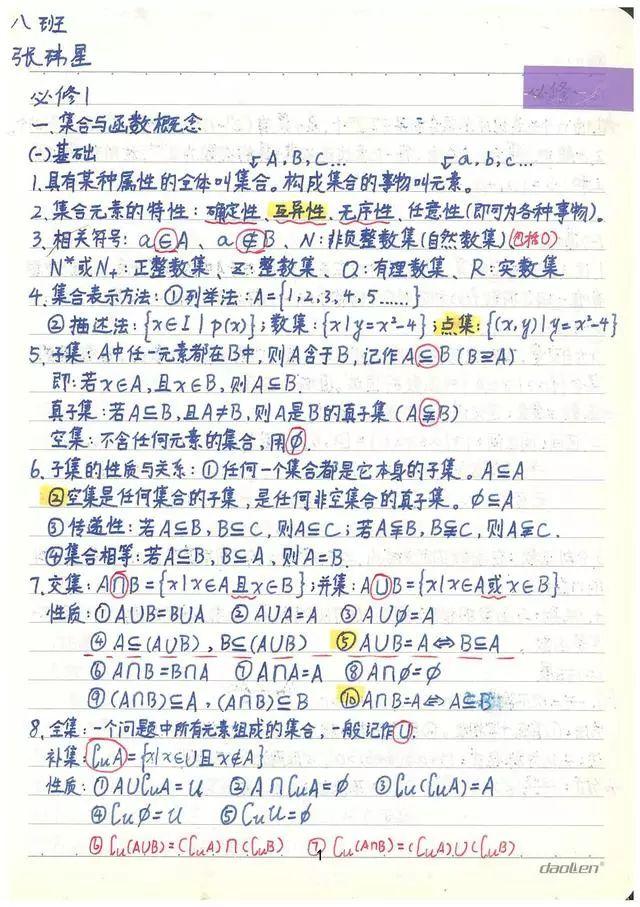 八班
张玮星
必修1
必修一
一、集合与函数概念
(一)基础
A,B,C… a,b,c…
1.具有某种属性的全体叫集合。构成集合的事物叫元素。
2.集合元素的特性:确定性、互异性、无序性、任意性(即可为各种事物)。
3.相关符号:a∈A、a∉B、N:非负整数集(自然数集)(包括0)
N*或N+:正整数集 Z:整数集 Q:有理数集 R:实数集
4.集合表示方法:①列举法:A={1,2,3,4,5……}
②描述法:{x∈I|p(x)};数集:{x|y=x²-4};点集:{(x,y)|y=x²-4}
5.子集:A中任一元素都在B中,则A含于B,记作A⊆B(B⊇A)
即:若x∈A,且x∈B,则A⊆B.
真子集:若A⊆B,且A≠B,则A是B的真子集(A⫋B)
空集:不含任何元素的集合,用∅.
6.子集的性质与关系:①任何一个集合都是它本身的子集。A⊆A
②空集是任何集合的子集,是任何非空集合的真子集。∅⊆A
③传递性:若A⊆B,B⊆C,则A⊆C;若A⫋B,B⫋C,则A⫋C.
④集合相等:若A⊆B,B⊆A,则A=B.
7.交集:A∩B={x|x∈A且x∈B};并集:A∪B={x|x∈A或x∈B}
性质:①A∪B=B∪A ②A∪A=A ③A∪∅=A
④A⊆(A∪B),B⊆(A∪B) ⑤A∪B=A⇔B⊆A
⑥A∩B=B∩A ⑦A∩A=A ⑧A∩∅=∅
⑨(A∩B)⊆A,(A∩B)⊆B ⑩A∩B=A⇔A⊆B
8.全集:一个问题中所有元素组成的集合,一般记作U.
补集:∁uA={x|x∈U且x∉A}
性质:①A∪∁uA=U ②A∩∁uA=∅ ③∁u(∁uA)=A
④∁u∅=U ⑤∁uU=∅
⑥∁u(A∪B)=(∁uA)∩(∁uB) ⑦∁u(A∩B)=(∁uA)∪(∁uB)
1
daolien